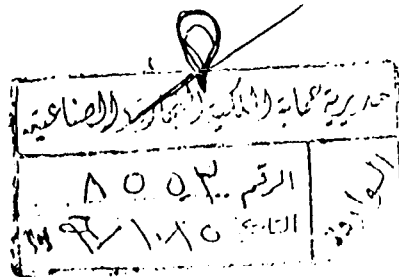 مديرية حماية الملكية التجارية والصناعية
الرقم ٨٥٥٣
التاريخ
الواردة